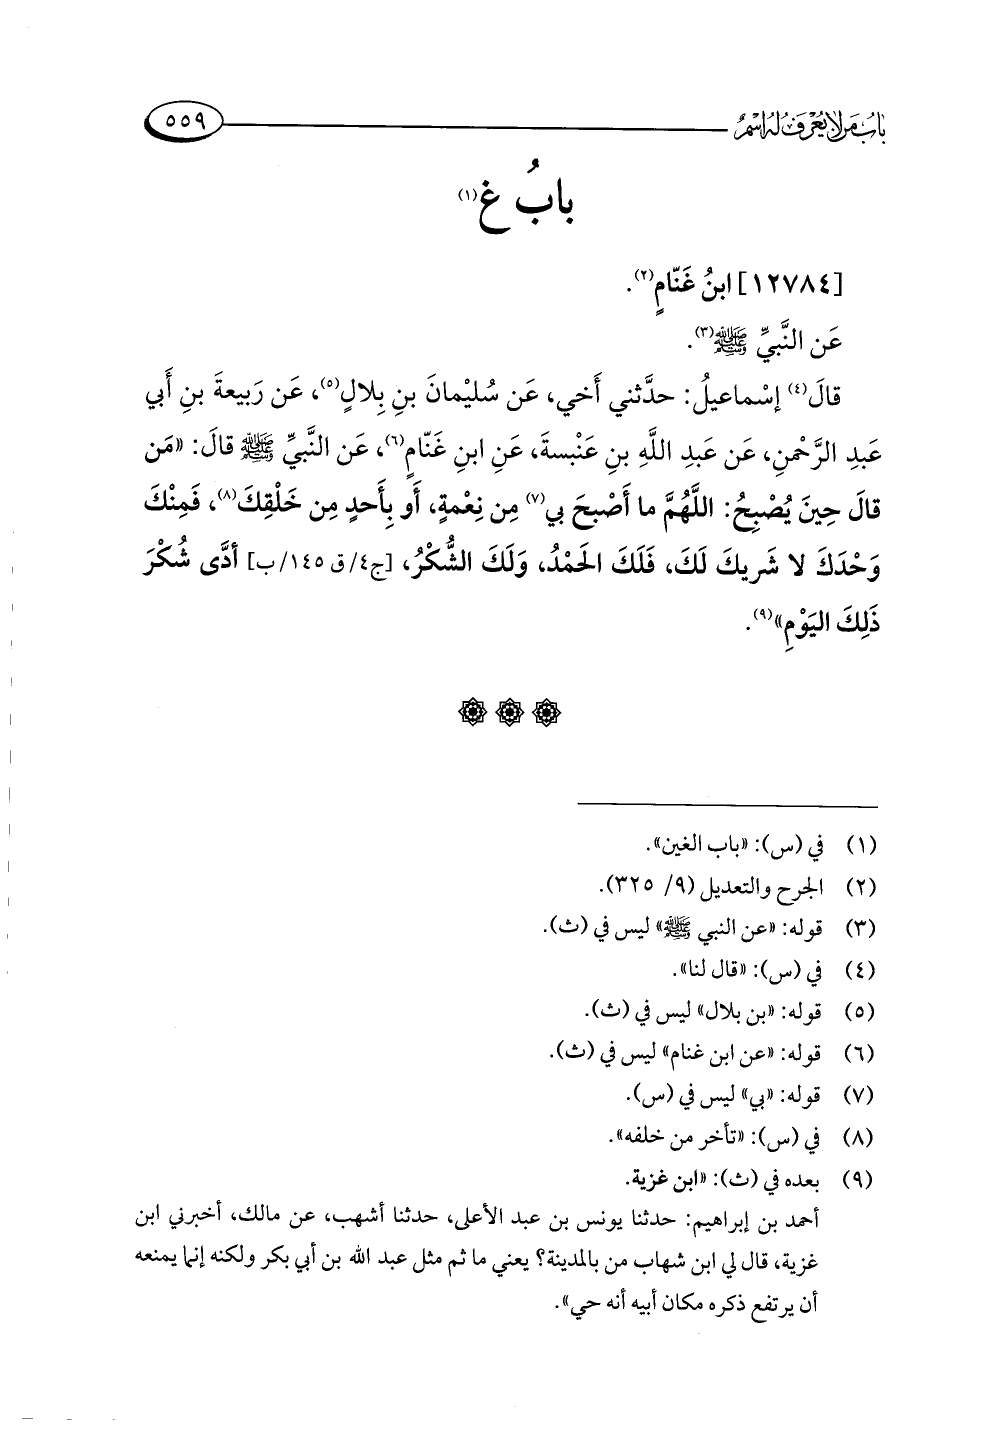 باب من لا يعرف له اسم ٥٥٩
بابُ غ(١)
[١٢٧٨٤] ابنُ غَنّامٍ(٢).
عَن النَّبيِّ ﷺ(٣).
قالَ(٤) إسْماعيلُ: حدَّثني أَخي، عَن سُلَيْمانَ بنِ بِلالٍ(٥)، عَن رَبيعةَ بنِ أَبي
عَبدِ الرَّحْمنِ، عَن عَبدِ اللَّهِ بنِ عَنْبسةَ، عَنِ ابنِ غَنّامٍ(٦)، عَن النَّبيِّ ﷺ قالَ: «مَن
قالَ حِينَ يُصْبِحُ: اللَّهُمَّ ما أَصْبحَ بي(٧) مِن نِعْمةٍ، أَو بِأَحدٍ مِن خَلْقِكَ(٨)، فَمِنْكَ
وَحْدَكَ لا شَريكَ لَكَ، فَلَكَ الحَمْدُ، وَلَكَ الشُّكْرُ، [ج٤/ ق ١٤٥/ب] أدَّى شُكْرَ
ذَلِكَ اليَوْمِ»(٩).
(١) في (س): «باب الغين».
(٢) الجرح والتعديل (٩/ ٣٢٥).
(٣) قوله: «عن النبي ﷺ» ليس في (ث).
(٤) في (س): «قال لنا».
(٥) قوله: «بن بلال» ليس في (ث).
(٦) قوله: «عن ابن غنام» ليس في (ث).
(٧) قوله: «بي» ليس في (س).
(٨) في (س): «تأخر من خلفه».
(٩) بعده في (ث): «ابن غزية.
أحمد بن إبراهيم: حدثنا يونس بن عبد الأعلى، حدثنا أشهب، عن مالك، أخبرني ابن
غزية، قال لي ابن شهاب من بالمدينة؟ يعني ما ثم مثل عبد الله بن أبي بكر ولكنه إنما يمنعه
أن يرتفع ذكره مكان أبيه أنه حي».